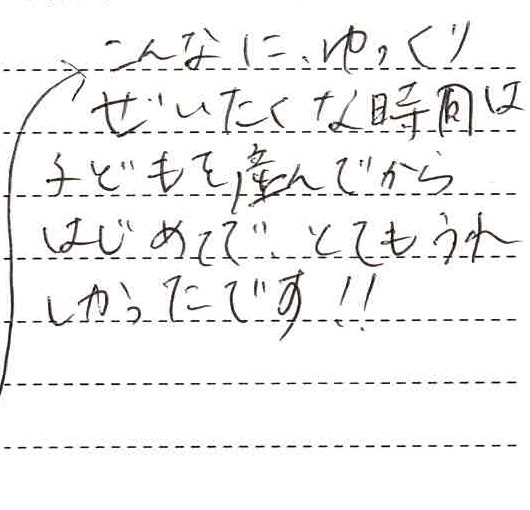 こんなに、ゆっくり
ぜいたくな時間は
子どもを産んでから
はじめてで、とてもうれ
しかったです!!